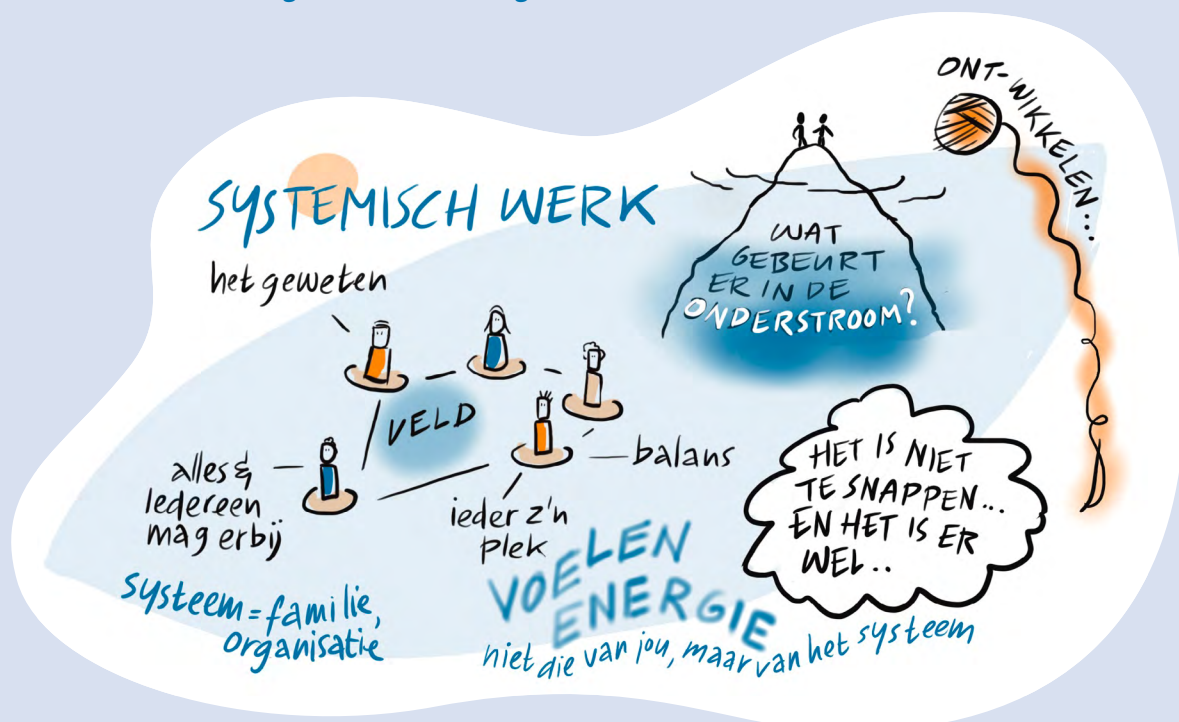 SYSTEMISCH WERK
het geweten
VELD
alles &
Iedereen
mag erbij
ieder z'n
plek
balans
systeem = familie,
organisatie
VOELEN
ENERGIE
niet die van jou, maar van het systeem
WAT
GEBEURT
ER IN DE
ONDERSTROOM?
ONT-WIKKELEN...
HET IS NIET
TE SNAPPEN...
EN HET IS ER
WEL..